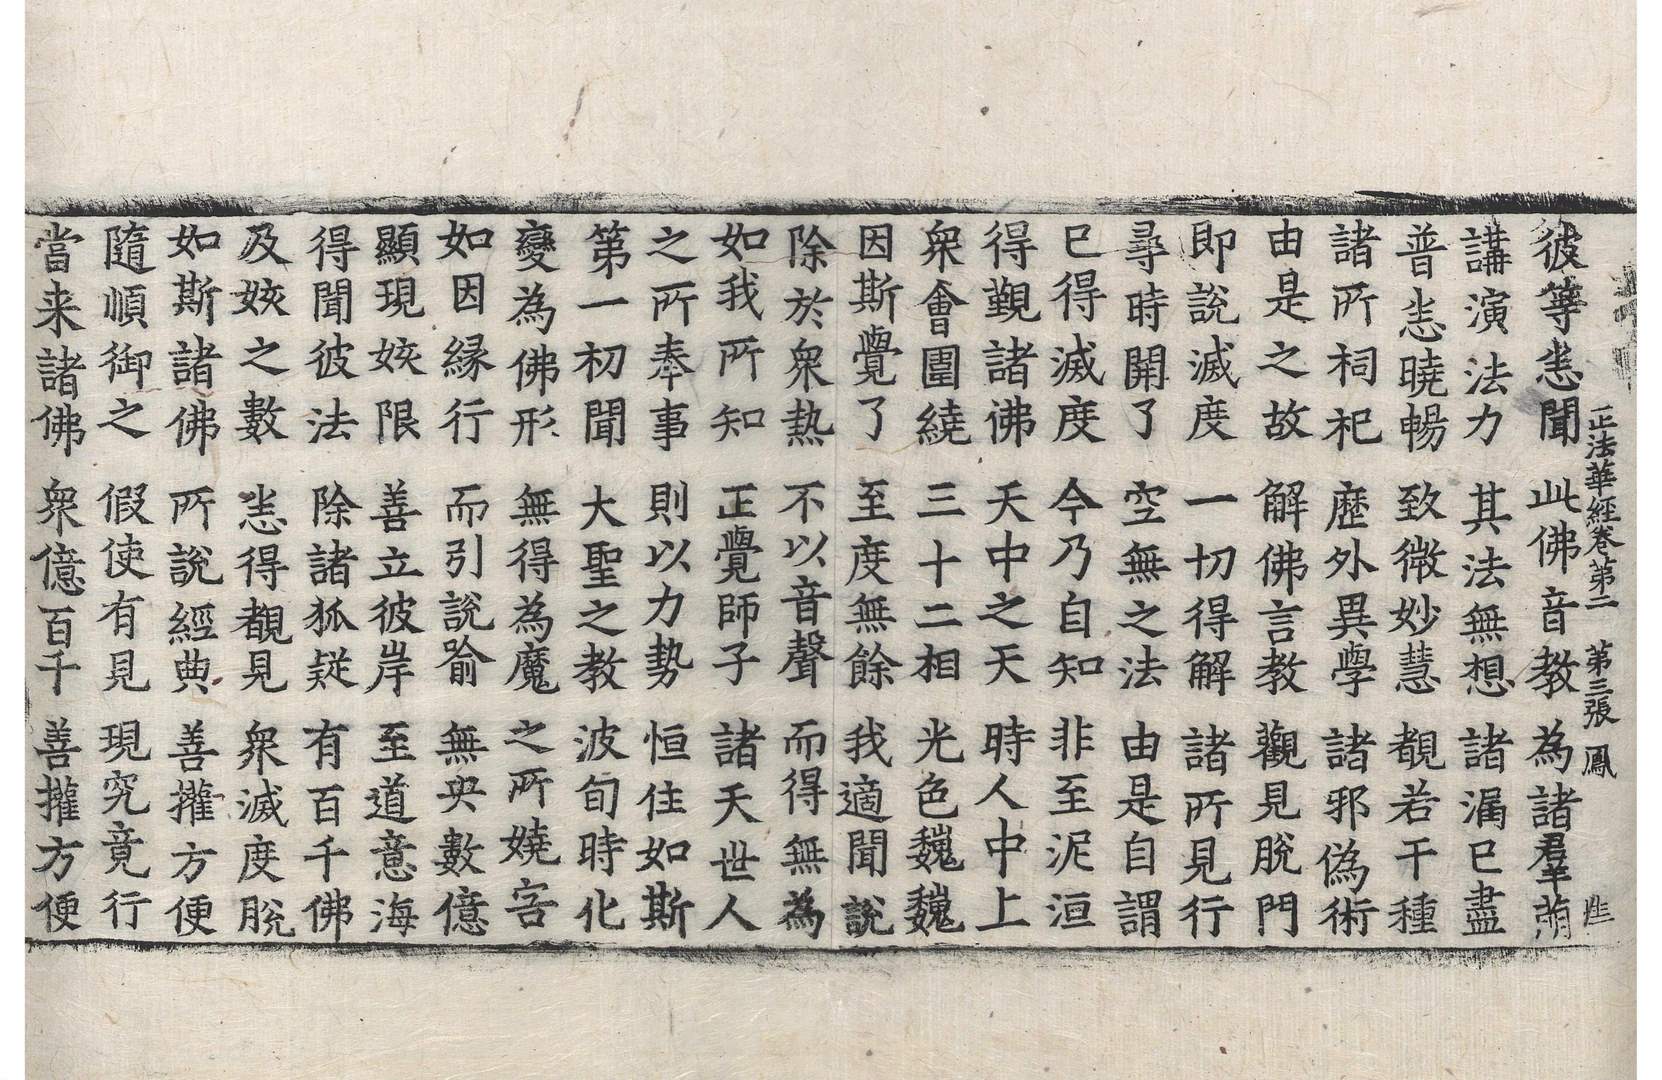 正法華經卷第二 第三張 鳳
彼等恚聞 此佛音教 為諸羣萠
講演法力 其法無想 諸漏已盡
普恚曉暢 致微妙慧 覩若干種
諸所祠祀 歷外異學 諸邪偽術
由是之故 解佛言教 觀見脫門
即說滅度 一切得解 諸所見行
尋時開了 空無之法 由是自謂
已得滅度 今乃自知 非至泥洹
得覲諸佛 天中之天 時人中上
衆會圍繞 三十二相 光色巍巍
因斯覺了 至度無餘 我適聞說
除於衆熱 不以音聲 而得無為
如我所知 正覺師子 諸天世人
之所奉事 則以力勢 恒住如斯
第一初聞 大聖之教 波旬時化
變為佛形 無得為魔 之所嬈害
如因緣行 而引說喻 無央數億
顯現姟限 善立彼岸 至道意海
得聞彼法 除諸狐疑 有百千佛
及姟之數 恚得覩見 衆滅度脫
如斯諸佛 所說經典 善權方便
隨順御之 假使有見 現究竟行
當来諸佛 衆億百千 善權方便